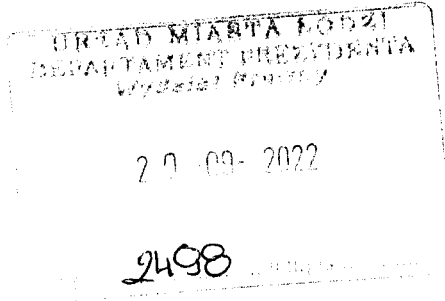 URZĄD MIASTA ŁODZI
DEPARTAMENT PREZYDENTA
Wydział Prawny
-09- 2022
2498